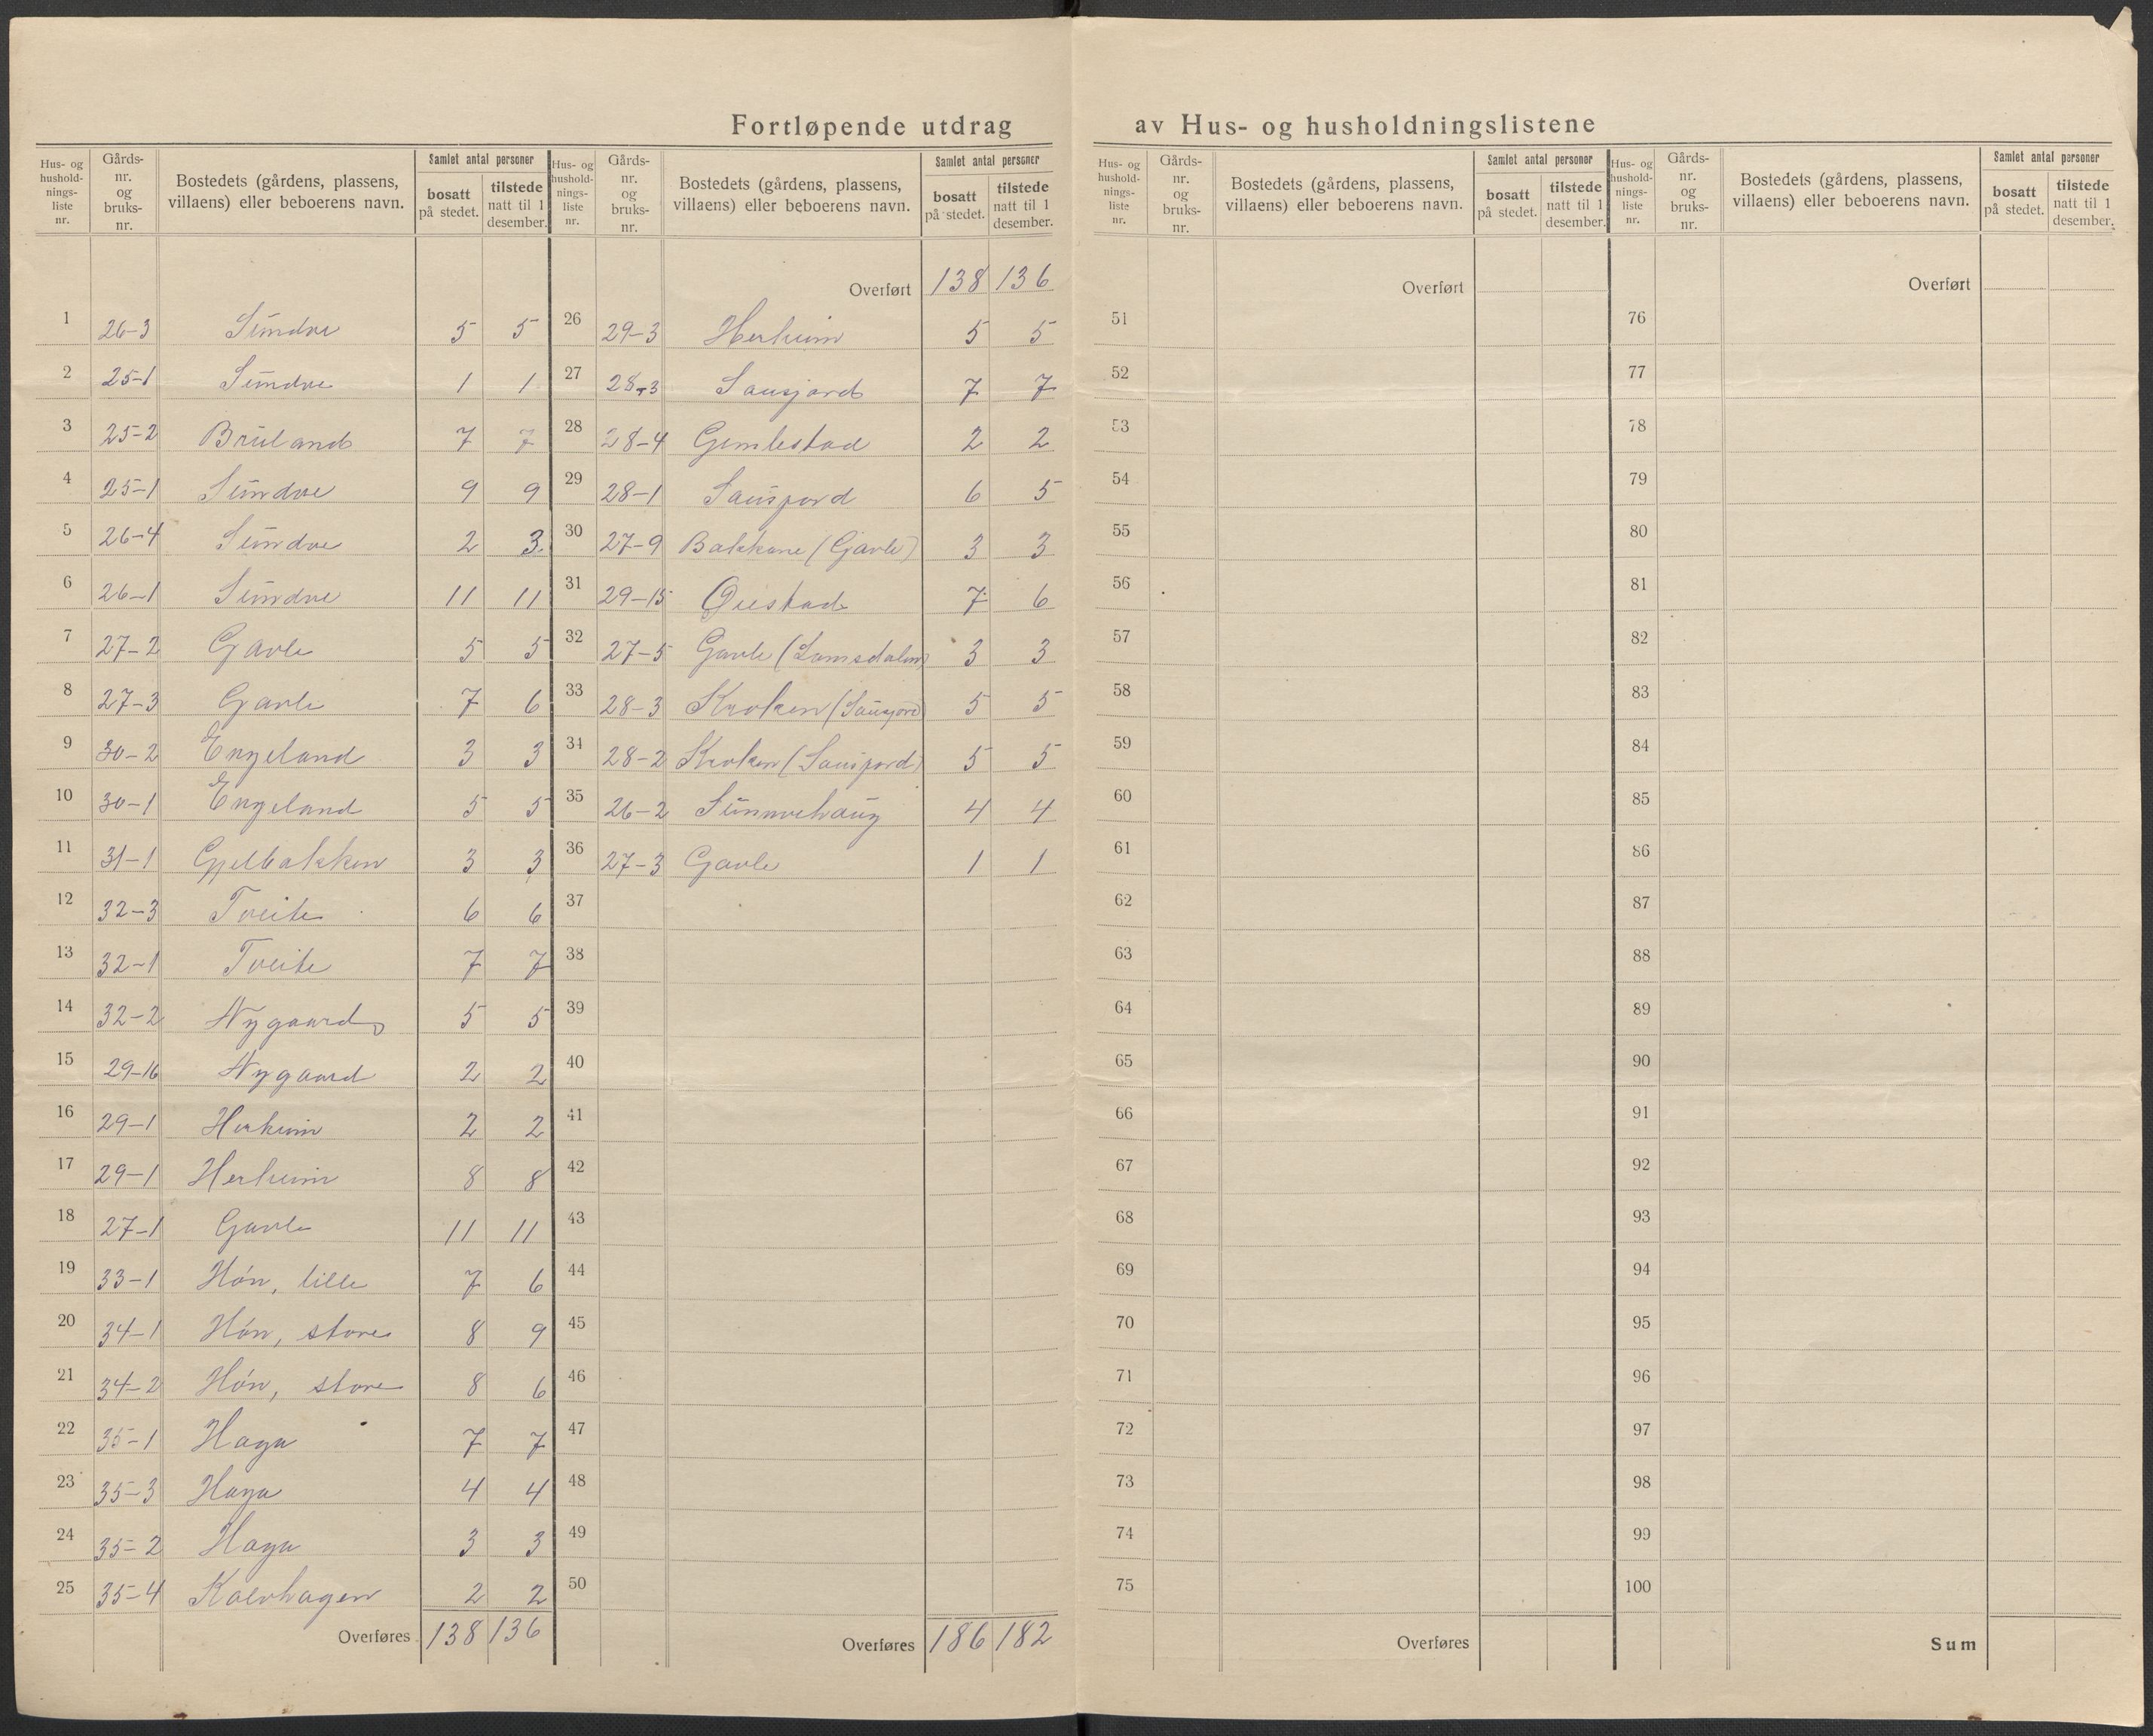 Fortløpende utdrag av Hus- og husholdningslistene
Hus- og husholdnings-liste nr. Gårds-nr. og bruks-nr. Bostedets (gårdens, plassens, villaens) eller beboerens navn. Samlet antal personer bosatt på stedet. tilstede natt til 1 desember.
1 26-3 Sundve 5 5
2 25-1 Sundve 1 1
3 25-2 Bruland 7 7
4 25-1 Sundve 9 9
5 26-4 Sundve 2 3
6 26-1 Sundve 11 11
7 27-2 Gavle 5 5
8 27-3 Gavle 7 6
9 30-2 Engeland 3 3
10 30-1 Engeland 5 5
11 31-1 Gjelbakken 3 3
12 32-3 Tveite 6 6
13 32-1 Tveite 7 7
14 32-2 Nygaard 5 5
15 29-16 Nygaard 2 2
16 29-1 Herheim 2 2
17 29-1 Herheim 8 8
18 27-1 Gavle 11 11
19 33-1 Høn, lille 7 6
20 34-1 Høn, store 8 9
21 34-2 Høn, store 8 6
22 35-1 Haga 7 7
23 35-3 Haga 4 4
24 35-2 Haga 3 3
25 35-4 Kalvhagen 2 2
Overføres 138 136
Hus- og husholdnings-liste nr. Gårds-nr. og bruks-nr. Bostedets (gårdens, plassens, villaens) eller beboerens navn. Samlet antal personer bosatt på stedet. tilstede natt til 1 desember.
Overført 138 136
26 29-3 Herheim 5 5
27 28-3 Sausjord 7 7
28 28-4 Gimlestad 2 2
29 28-1 Sausjord 6 5
30 27-9 Bakkane (Gavle) 3 3
31 29-15 Øiestad 7 6
32 27-5 Gavle (Lomsdalen) 3 3
33 28-3 Kroken (Sausjord) 5 5
34 28-2 Kroken (Sausjord) 5 5
35 26-2 Sunnvehaug 4 4
36 27-3 Gavle 1 1
37
38
39
40
41
42
43
44
45
46
47
48
49
50
Overføres 186 182
Hus- og husholdnings-liste nr. Gårds-nr. og bruks-nr. Bostedets (gårdens, plassens, villaens) eller beboerens navn. Samlet antal personer bosatt på stedet. tilstede natt til 1 desember.
Overført
51
52
53
54
55
56
57
58
59
60
61
62
63
64
65
66
67
68
69
70
71
72
73
74
75
Overføres
Hus- og husholdnings-liste nr. Gårds-nr. og bruks-nr. Bostedets (gårdens, plassens, villaens) eller beboerens navn. Samlet antal personer bosatt på stedet. tilstede natt til 1 desember.
Overført
76
77
78
79
80
81
82
83
84
85
86
87
88
89
90
91
92
93
94
95
96
97
98
99
100
Sum